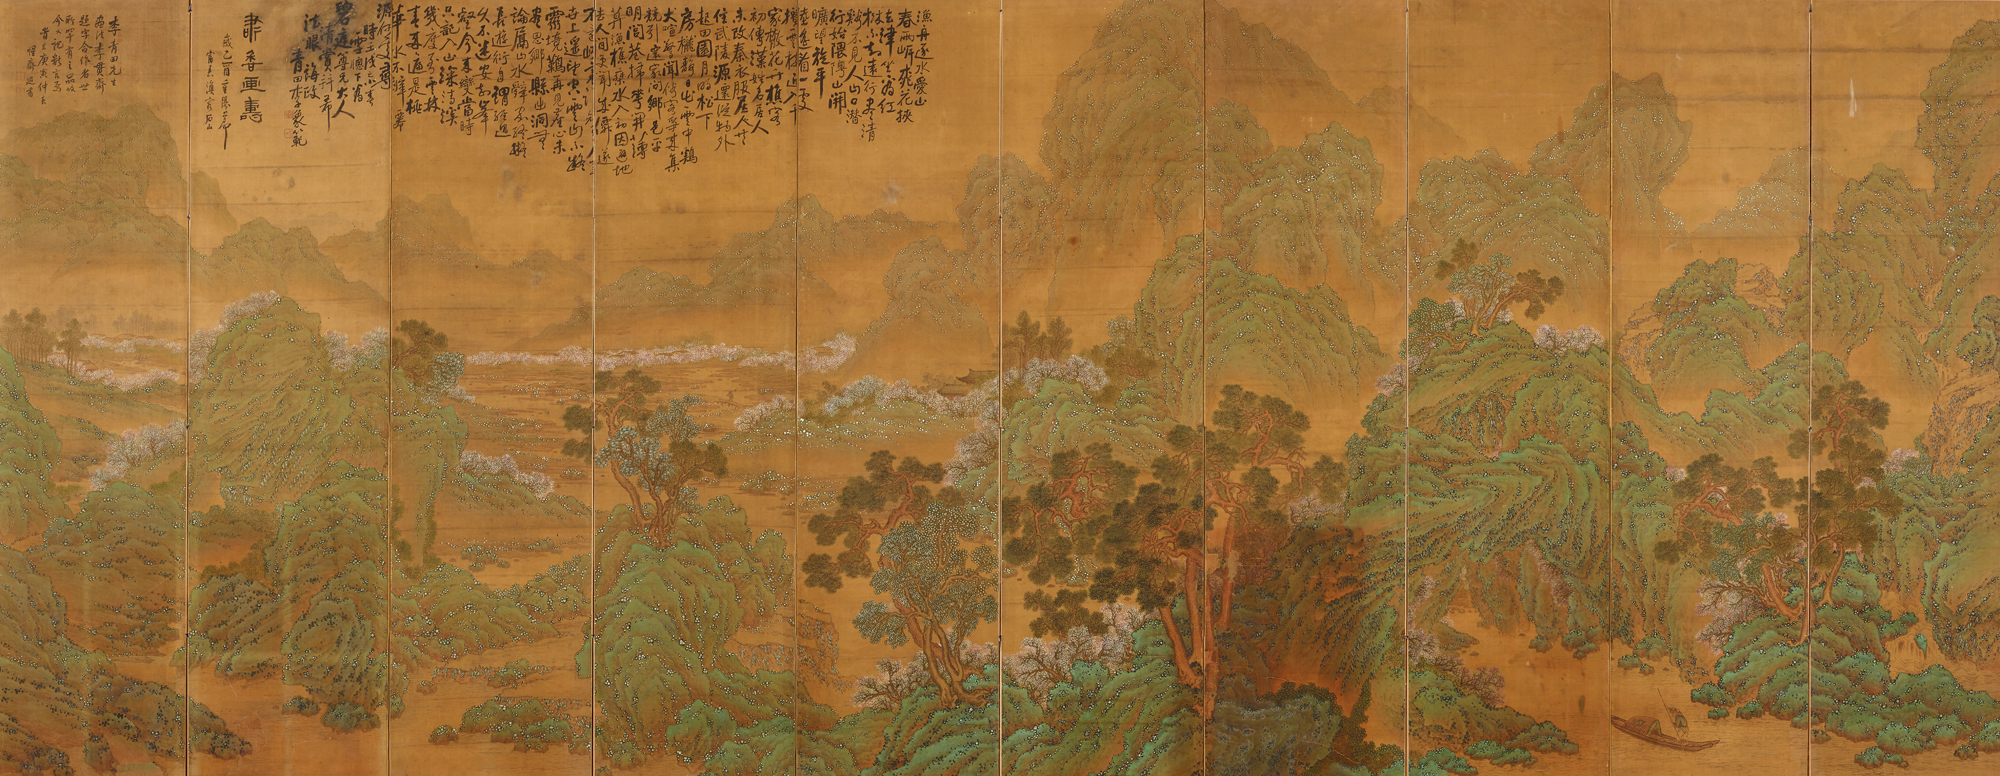 漁舟逐水愛山
春兩岍桃花挾
去津坐看紅
樹不知遠行盡清
谿不見人山口潛
行始隈隩山開
曠望旋平
陸遙看一處
攢雲樹近入千
家散花竹樵客
初傳漢姓名居人
未改秦衣服居人共
住武陵源還從物外
起田園月明松下
房櫳靜日出雲中鷄
犬喧驚聞俗客爭來集
競引還家問鄉邑平
明閭巷掃花開薄
暮漁樵乘水入初因避地
去人間更聞神僊遂
不還峽裏誰知有人事
世中遙望空雲山不疑
靈境難再見塵心未
盡思鄉縣出洞無
論隔山水辭家終擬
長遊衍自謂經過
久不迷安知峰
壑今來變當時
只記入山深清溪
幾度到雲林
春來遍是桃
華水不辨僊
源何處尋
時壬戌
碧庭尊兄大人
清賞
法眼誨政
青田李象範
香画壽
歲己酉
李青田先生
畵法李貫齋
題字合作